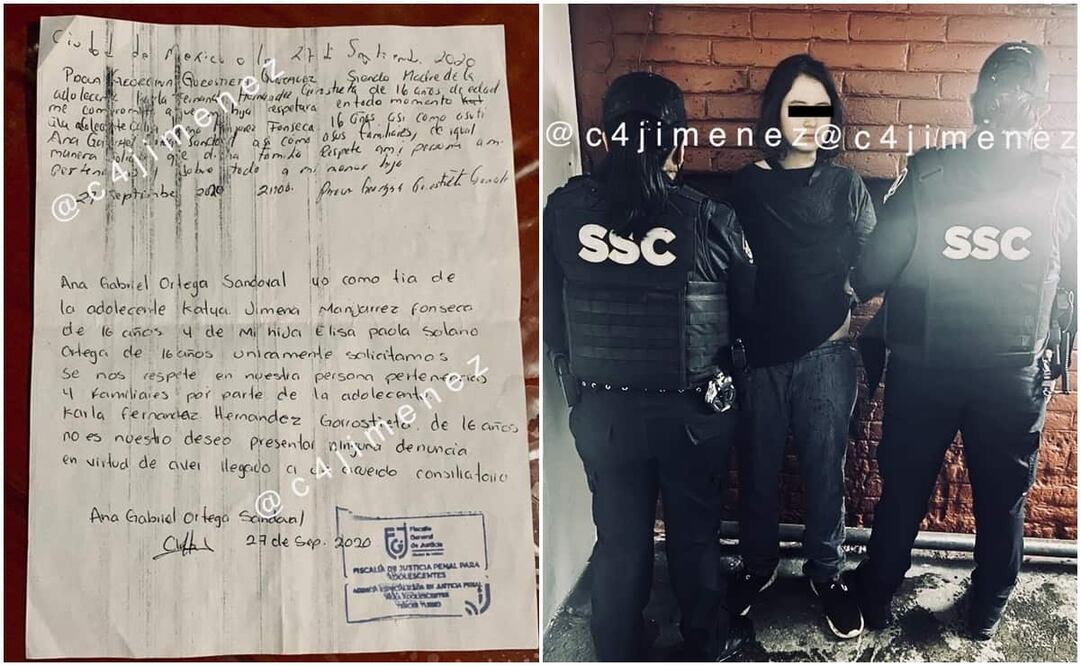 Ciudad de Mexico a 27 de Septiembre 2020
siendo Madre de la
adolecente Karla Fernanda Hernandez Gorostieta de 16 años de edad
me comprometo a mi hija respetara en todo momento
la adolecente Fonseca 16 años asi como a su ti
Ana Gabriel Sandoval asi como a sus familiares, de igual
manera que dicha familia respete a mi persona a mi
pertenencias y sobre todo a mi menor hija
27 septiembre 2020 21:00
Ana Gabriel Ortega Sandoval yo como tia de
la adolecente Katya Jimena Manjarrez Fonseca
de 16 años y de mi hija Elisa paola Solano
Ortega de 16 años unicamente solicitamos
se nos respete en nuestra persona pertenencias
y familiares por parte de la adolecente
Karla Fernandez Hernandez Gorrostieta. de 16 años
no es nuestro deseo presentar ninguna denuncia
en virtud de aver llegado a un acuerdo consiliatorio
Ana Gabriel Ortega Sandoval
27 de Sep. 2020
FGJ
Fiscalía
General
de Justicia
FISCALÍA DE JUSTICIA PENAL PARA
ADOLESCENTES
AGENCIA ESPECIALIZADA EN JUSTICIA PENAL
PARA ADOLESCENTES
@c4jimenez
@c4jimenez
@c4jimenez@c4jimenez
SSC
SSC